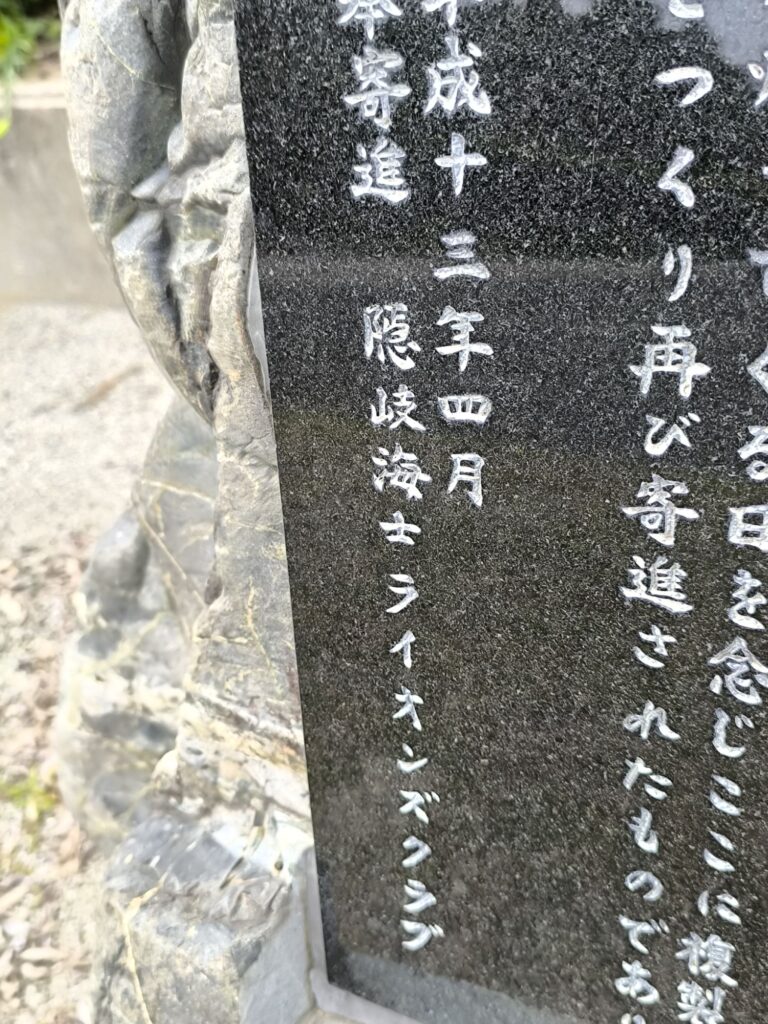 てくる日を念じここに複製
つくり再び寄進されたものであ
平成十三年四月
奉寄進　隠岐海士ライオンズクラブ